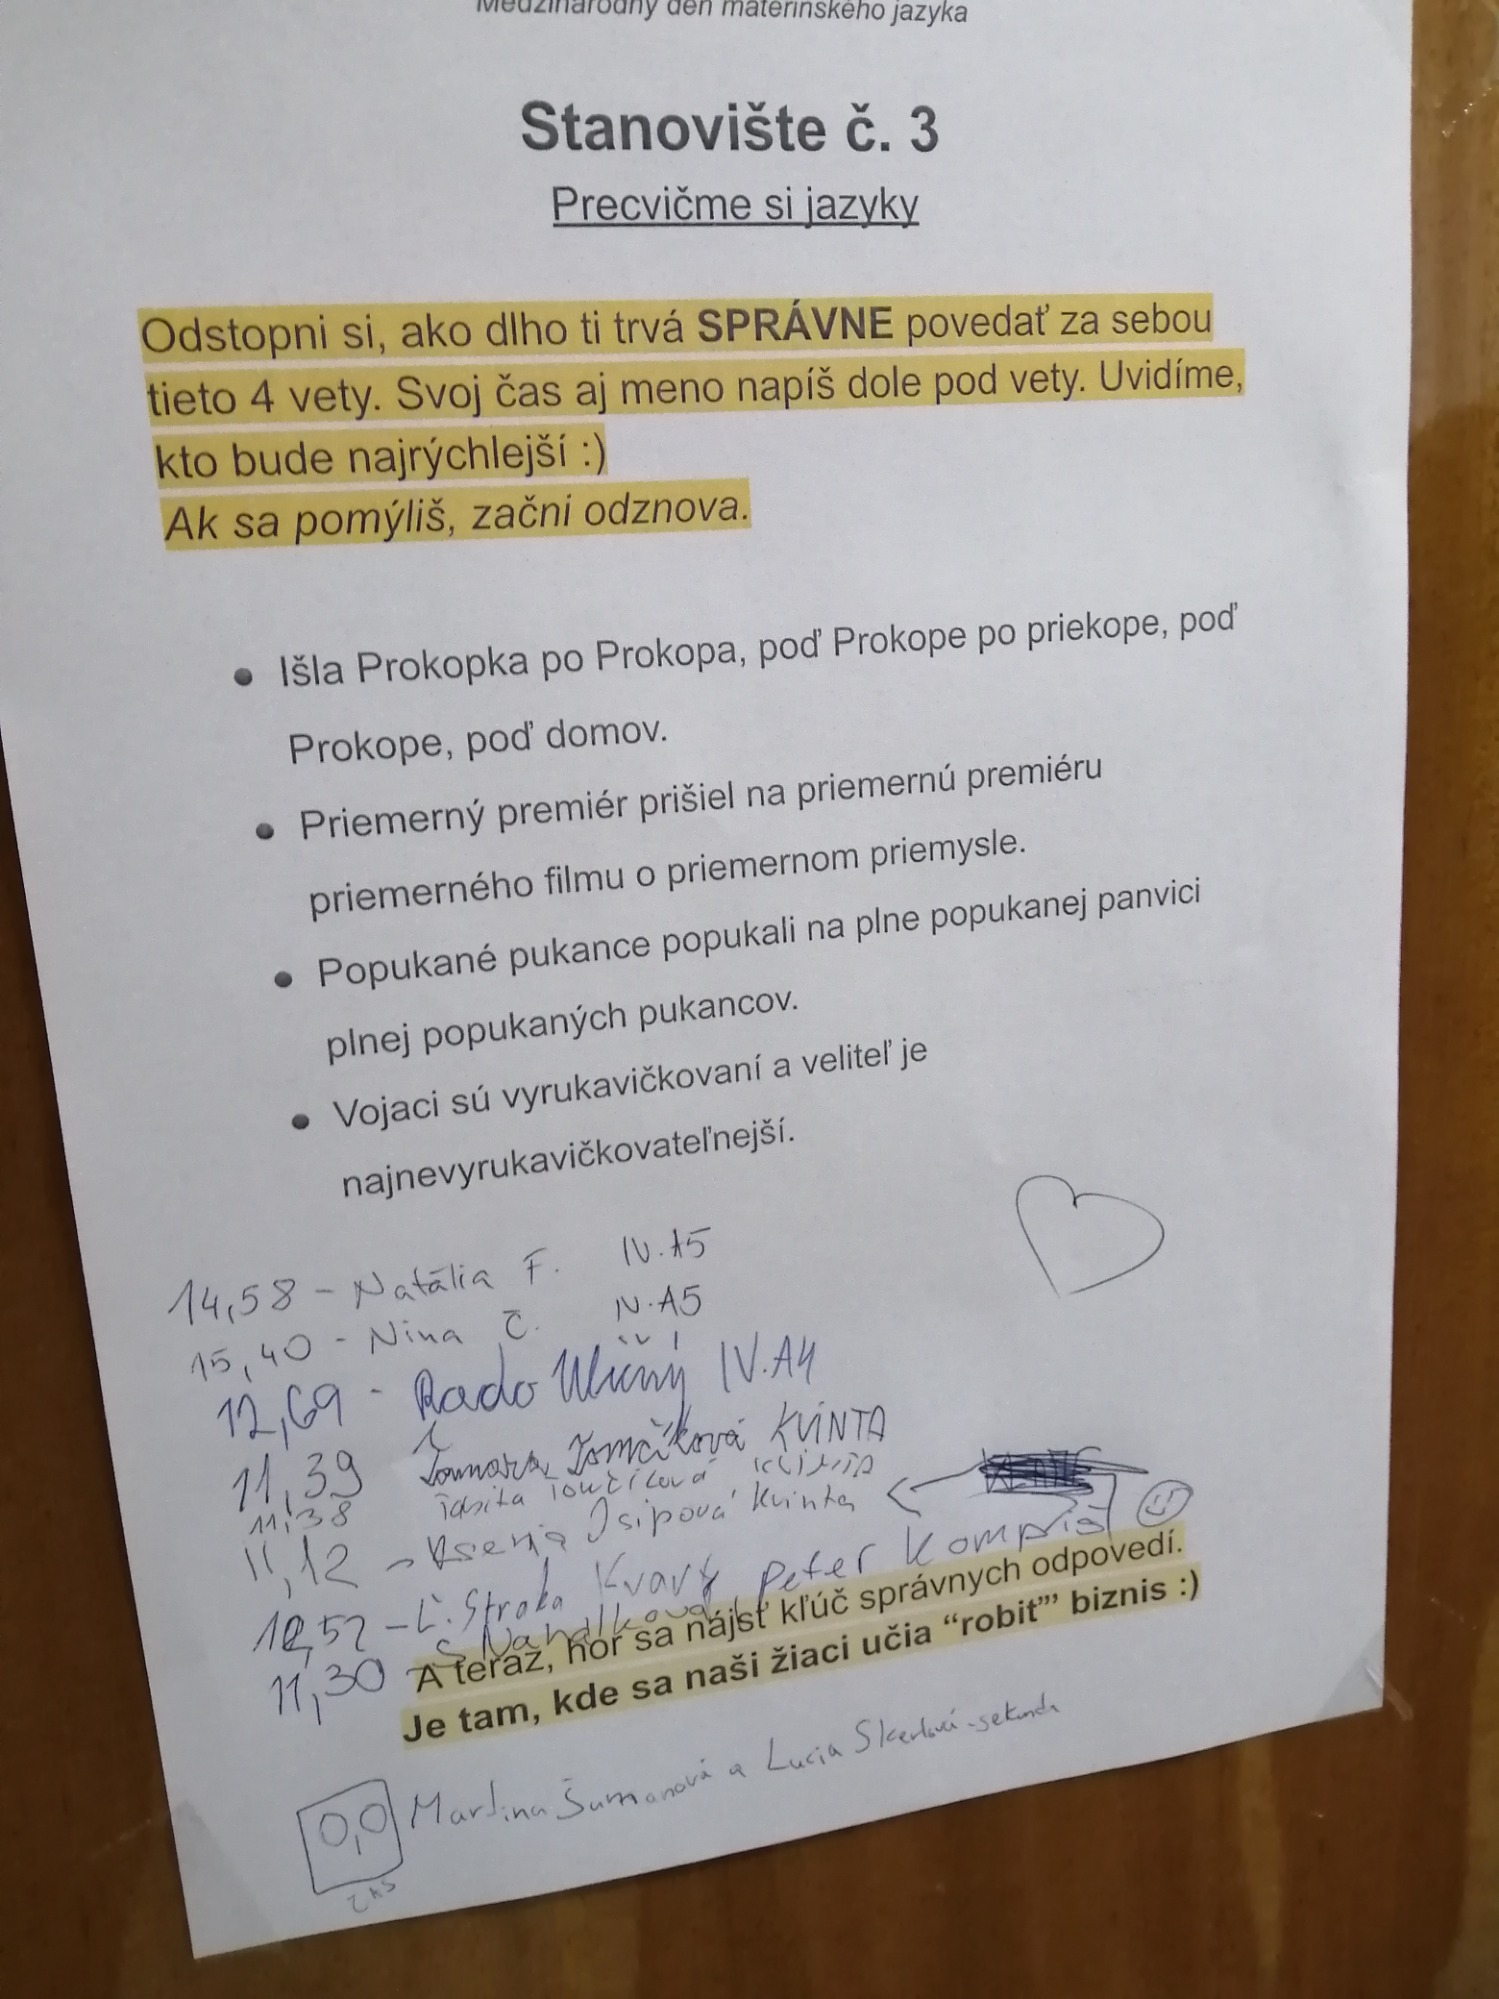 Medzinárodný deň materinského jazyka
Stanovište č. 3
Precvičme si jazyky
Odstopni si, ako dlho ti trvá SPRÁVNE povedať za sebou
tieto 4 vety. Svoj čas aj meno napíš dole pod vety. Uvidíme,
kto bude najrýchlejší :)
Ak sa pomýliš, začni odznova.
• Išla Prokopka po Prokopa, poď Prokope po priekope, poď
Prokope, poď domov.
• Priemerný premiér prišiel na priemernú premiéru
priemerného filmu o priemernom priemysle.
• Popukané pukance popukali na plne popukanej panvici
plnej popukaných pukancov.
• Vojaci sú vyrukavičkovaní a veliteľ je
najnevyrukavičkovateľnejší.
14,58 - Natália F. IV.A5
15,40 - Nina Č. IV.A5
12,69 - Rado IV.A4
11,39 Tomčíková KVINTA
11,38
11,12 - Ksenja Isipová kvinta
52 - Ľ. Straka Kvarta Peter
11,30
A teraz, hor sa nájsť kľúč správnych odpovedí.
Je tam, kde sa naši žiaci učia “robit”’ biznis :)
0,0 Martina Šumanová a Lucia sekunda
ZAS